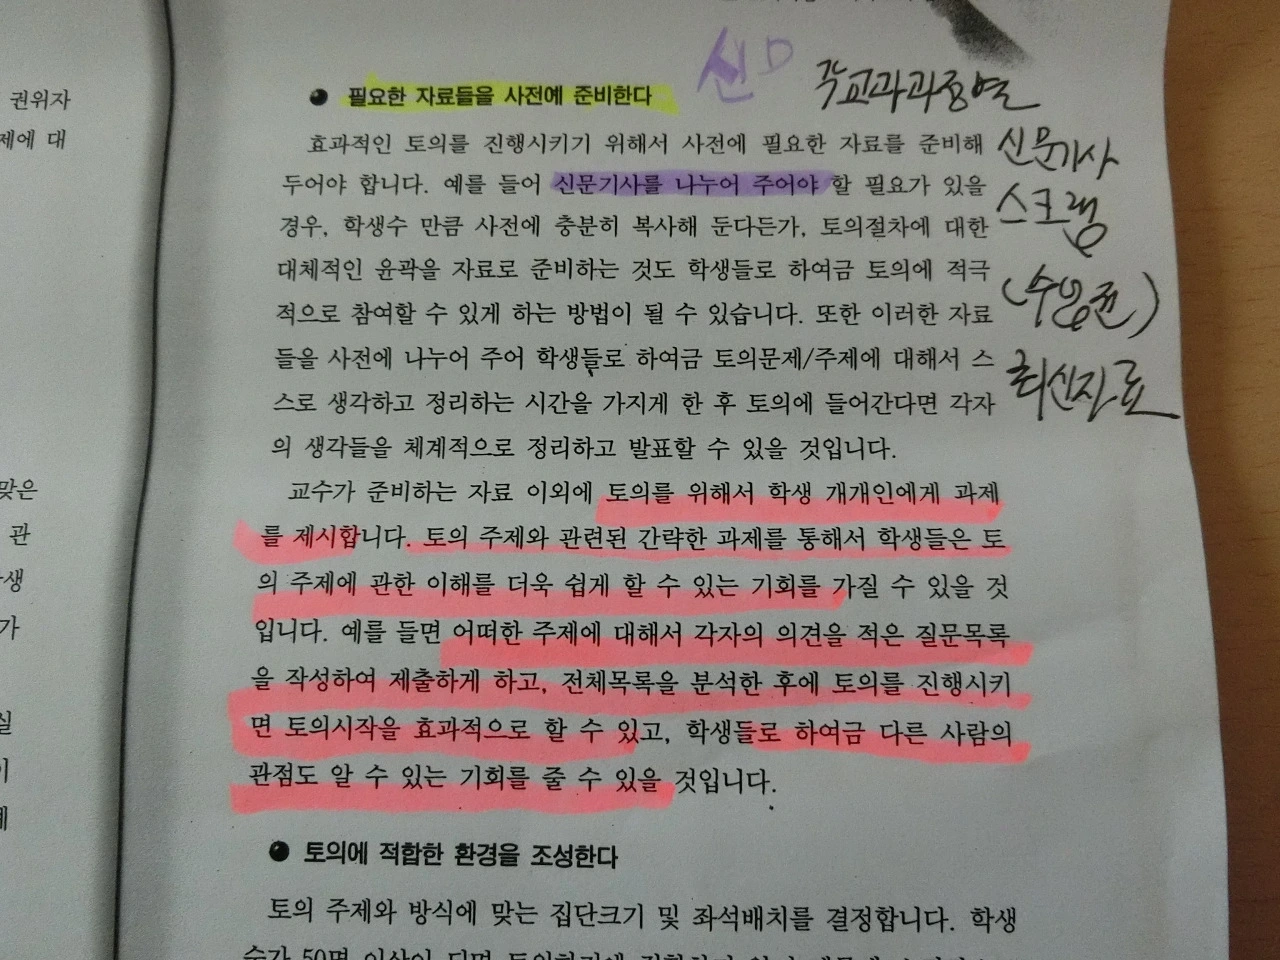 권위자
제에 대
맞은
관
생
가
실
신ㅁ
각교과과정별
● 필요한 자료들을 사전에 준비한다
효과적인 토의를 진행시키기 위해서 사전에 필요한 자료를 준비해
두어야 합니다. 예를 들어 신문기사를 나누어 주어야 할 필요가 있을
경우, 학생수 만큼 사전에 충분히 복사해 둔다든가, 토의절차에 대한
대체적인 윤곽을 자료로 준비하는 것도 학생들로 하여금 토의에 적극
적으로 참여할 수 있게 하는 방법이 될 수 있습니다. 또한 이러한 자료
들을 사전에 나누어 주어 학생들로 하여금 토의문제/주제에 대해서 스
스로 생각하고 정리하는 시간을 가지게 한 후 토의에 들어간다면 각자
의 생각들을 체계적으로 정리하고 발표할 수 있을 것입니다.
신문기사
스크랩
최신자료
교수가 준비하는 자료 이외에 토의를 위해서 학생 개개인에게 과제
를 제시합니다. 토의 주제와 관련된 간략한 과제를 통해서 학생들은 토
의 주제에 관한 이해를 더욱 쉽게 할 수 있는 기회를 가질 수 있을 것
입니다. 예를 들면 어떠한 주제에 대해서 각자의 의견을 적은 질문목록
을 작성하여 제출하게 하고, 전체목록을 분석한 후에 토의를 진행시키
면 토의시작을 효과적으로 할 수 있고, 학생들로 하여금 다른 사람의
관점도 알 수 있는 기회를 줄 수 있을 것입니다.
● 토의에 적합한 환경을 조성한다
토의 주제와 방식에 맞는 집단크기 및 좌석배치를 결정합니다. 학생
수가 50명 이상이 되면